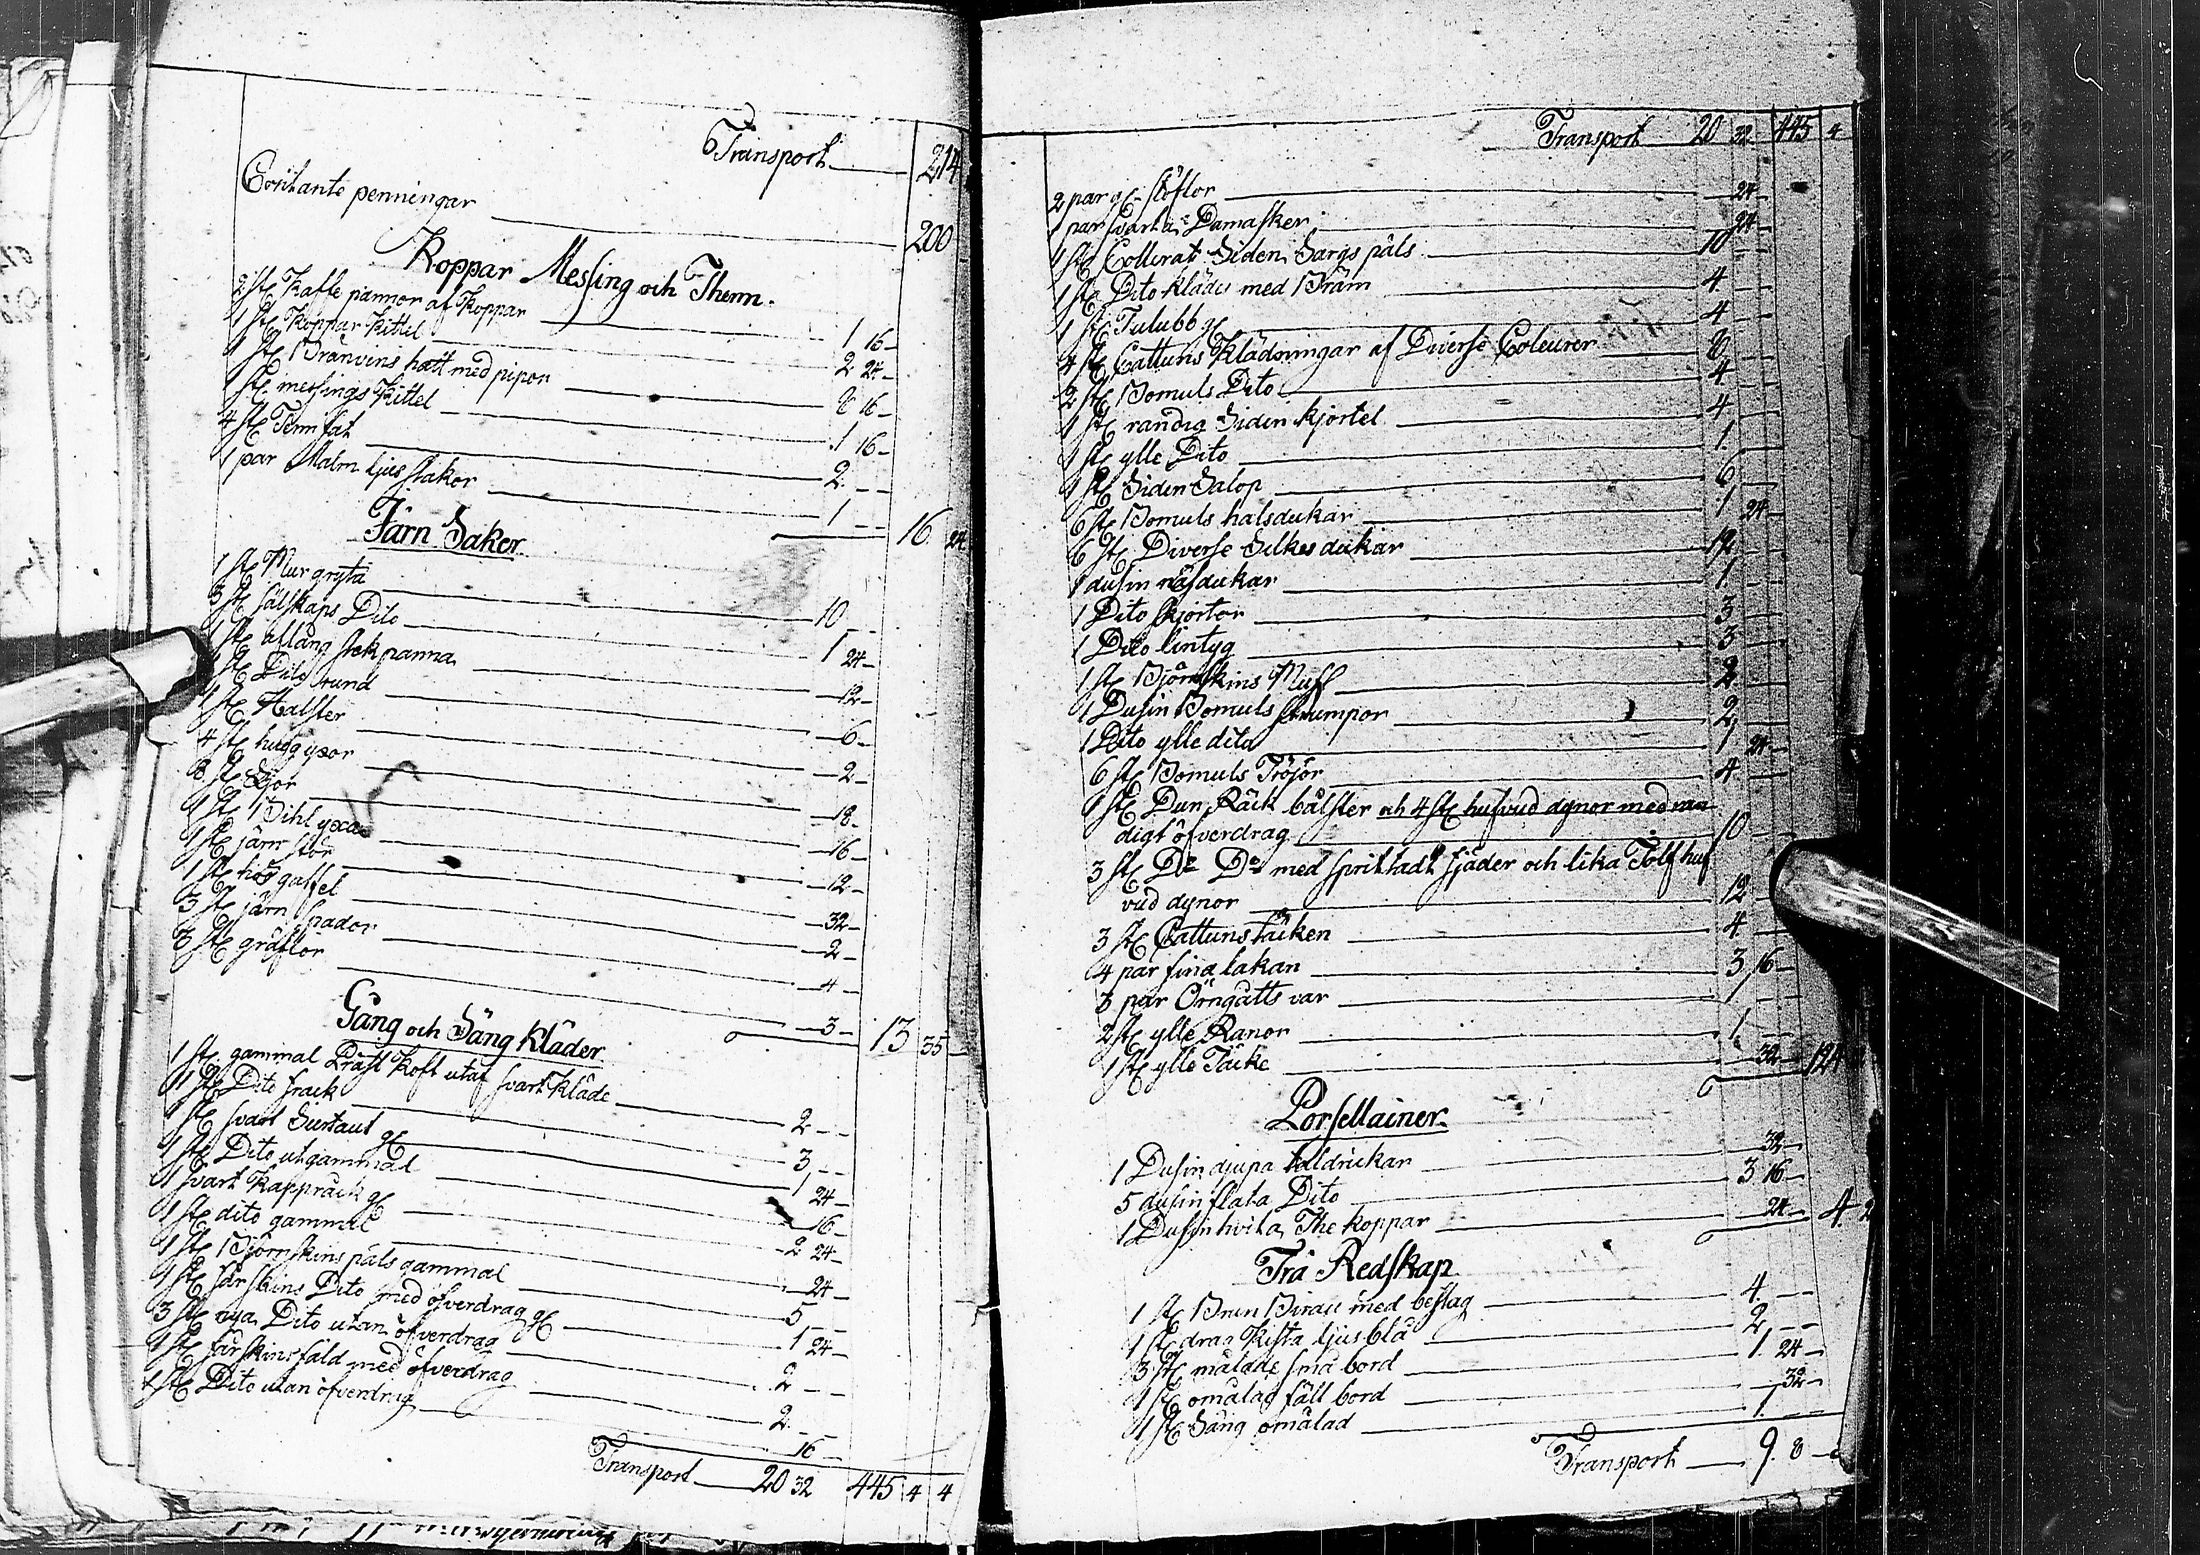 Transport 214
Contante penningar 200
Koppar Messing och Thenn.
2 st Kaffe pannor af Koppar 1 16
1 st Koppar Kittel 2 24
1 st Bränvins hatt med pipor 8 16
1 st messings Kittel 1 16
4 st Tenn fat 2
1 par Malm ljus stakar 1 16 24
Järn Saker
1 st Mur gryta 10
3 st sälskaps Dito 1 24
1 st aflång stekpanna 12
1 st Dito rund 6
1 st Halster 2
4 st hugg yxor 18
8 st Lior 16
1 st Bihl yxa 12
1 st järn stör 32
1 st hög gaffel 2
3 st järn spador 4
6 st gräflor 3 13 35
Gång och Säng Kläder
1 st gammal Präst Koft utaf svart Kläde 2
1 st Dito frack 3
1 st svart Surtaut gl 1 24
1 st Dito utgammal 16
1 svart Kappråck gl 2 24
1 st dito gammal 24
1 st Björnskins päls gammal 5
1 st fårskins Dito med öfverdrag gl 1 24
3 st nya Dito utan öfverdrag 2
1 st fårskins fäld med öfverdrag 2
1 st Dito utan öfverdrag 16
Transport 20 32 445 4 4
Transport 20 32 445 4
2 par gl stöflor 24
1 par svarta Damasker 24
1 st Collerat Siden Sargs päls 10
1 st Dito kläde med Bräm 4
1 st Tulubb gl 4
4 st Cattuns Klädningar af Diverse Coleurer 8
2 st Bomuls Dito 4
1 st randig Siden kjortel 4
1 st ylle Dito 1
1 st Siden Salop 6
6 st Bomuls halsdukar 1 24
6 st Diverse Silkes dukar 12
1 dusin näsdukar 1
1 Dito skjortor 3
1 Dito lintyg 3
1 st Björnskins Muff 2
1 Dusin Bomuls strumpor 2
1 Dito ylle dito 1 24
6 st Bomuls Tröjor 4
1 st Dun Räck bålster och 4 st hufvud dynor med ran
digt öfverdrag 10
3 st Do Do med sprittadt fjäder och lika Tolf huf
vud dynor 12
3 st Cattuns täcken 4
4 par fina lakan 3 16
3 par Örngåtts var 1
2 st ylle Ranor 1
1 st ylle Täcke 32 124
Porsellainer
1 Dusin djupa taldrickar 32
5 dusin flata Dito 3 16
1 Dusin hvita The koppar 24 4
Trä Redskap
1 st Brun Birau med beslag 4
1 st drag Kista ljusblå 2
3 st målade små bord 1 24
1 st omålad fäll bord 32
1 st Säng omålad 1
Transport 9 8